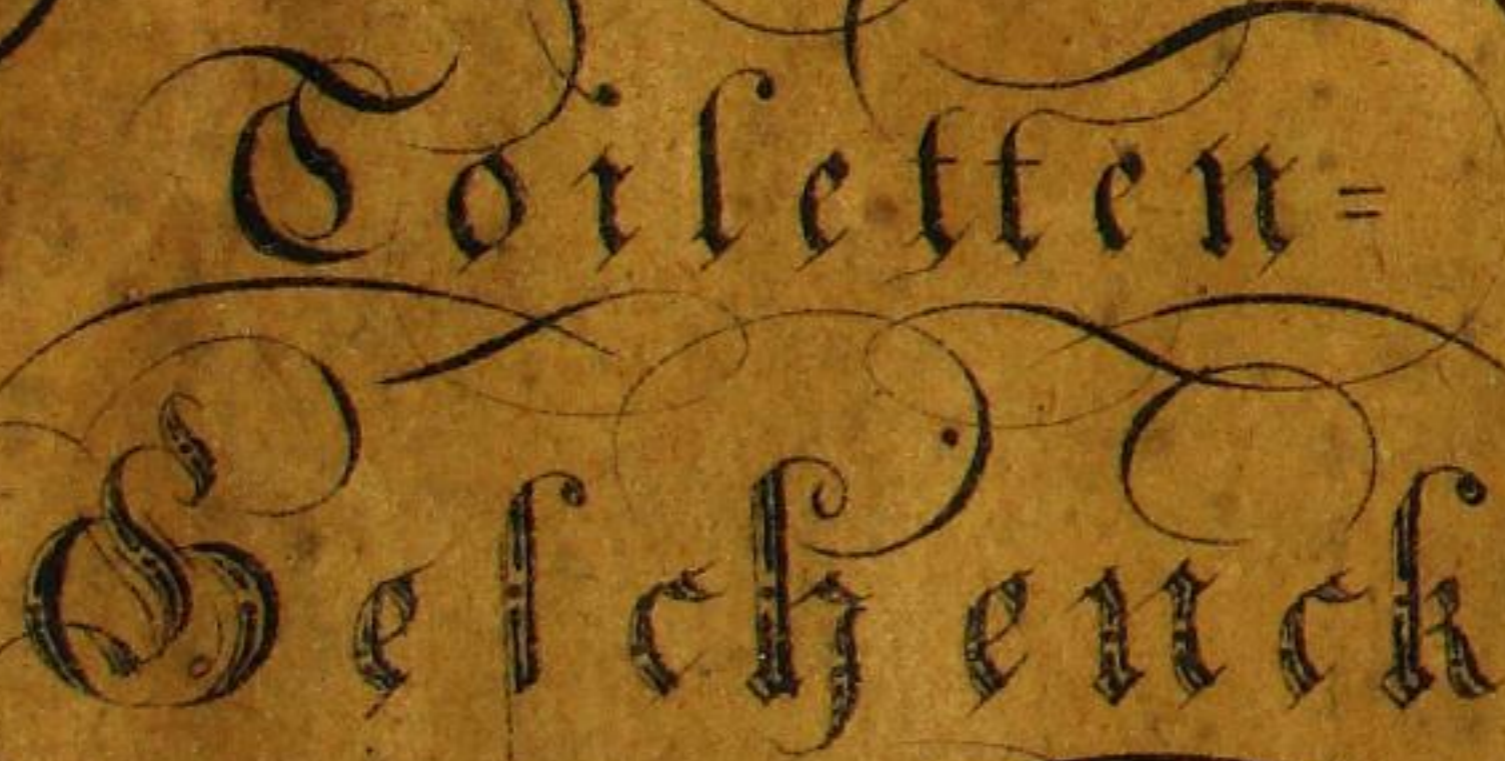 Toiletten=
Geſchenck